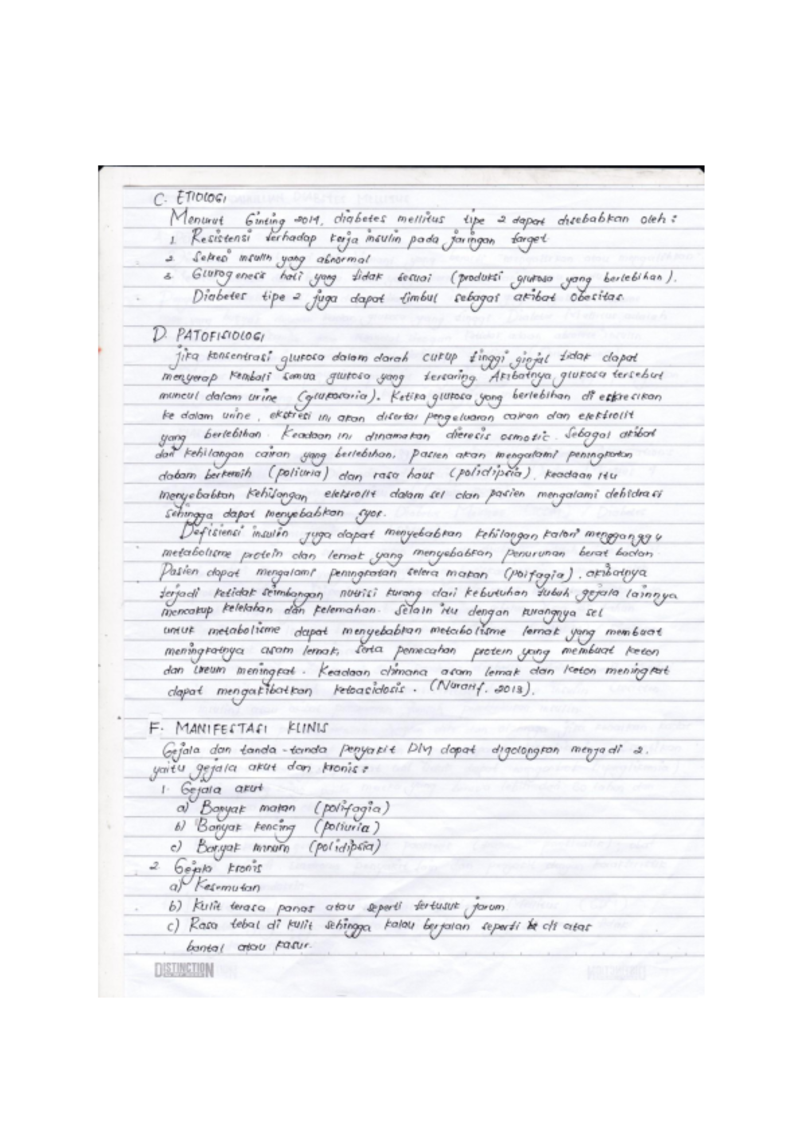 C. ETIOLOGI
Menurut Ginting 2014, diabetes mellitus tipe 2 dapat disebabkan oleh :
1. Resistensi terhadap kerja insulin pada jaringan target
2. Sekresi insulin yang abnormal
3. Glukogenesis hati yang tidak sesuai (produksi glukosa yang berlebihan).
Diabetes tipe 2 juga dapat timbul sebagai akibat obesitas.
D. PATOFISIOLOGI
jika konsentrasi glukosa dalam darah cukup tinggi ginjal tidak dapat
menyerap kembali semua glukosa yang tersaring Akibatnya glukosa tersebut
muncul dalam urine (glukosaria). Ketika glukosa yang berlebihan di eksresikan
ke dalam urine, ekskresi ini akan disertai pengeluaran cairan dan elektrolit
yang berlebihan. Keadaan ini dinamakan dieresis osmotic. Sebagai akibat
dari kehilangan cairan yang berlebihan, pasien akan mengalami peningkatan
dalam berkemih (poliuria) dan rasa haus (polidipsia). Keadaan itu
menyebabkan kehilangan elektrolit dalam sel dan pasien mengalami dehidrasi
sehingga dapat menyebabkan syok.
Defisiensi insulin juga dapat menyebabkan kehilangan kalori mengganggu
metabolisme protein dan lemak yang menyebabkan penurunan berat badan.
Pasien dapat mengalami peningkatan selera makan (polfagia), akibatnya
terjadi ketidak seimbangan nutrisi kurang dari kebutuhan tubuh gejala lainnya
mencakup kelelahan dan kelemahan. Selain itu dengan kurangnya sel
untuk metabolisme dapat menyebabkan metabolisme lemak yang membuat
meningkatnya asam lemak, serta pemecahan protein yang membuat keton
dan ureum meningkat. Keadaan dimana asam lemak dan keton meningkat
dapat mengakibatkan ketoasidosis. (Nurarif. 2013).
F. MANIFESTASI KLINIS
Gejala dan tanda-tanda penyakit DM dapat digolongkan menjadi 2.
yaitu gejala akut dan kronis :
1. Gejala akut
a) Banyak makan (polifagia)
b) Banyak kencing (poliuria)
c) Banyak minum (polidipsia)
2. Gejala kronis
a) Kesemutan
b) Kulit terasa panas atau seperti tertusuk jarum
c) Rasa tebal di kulit sehingga kalau berjalan seperti di atas
bantal atau kasur.
DISTINCTION